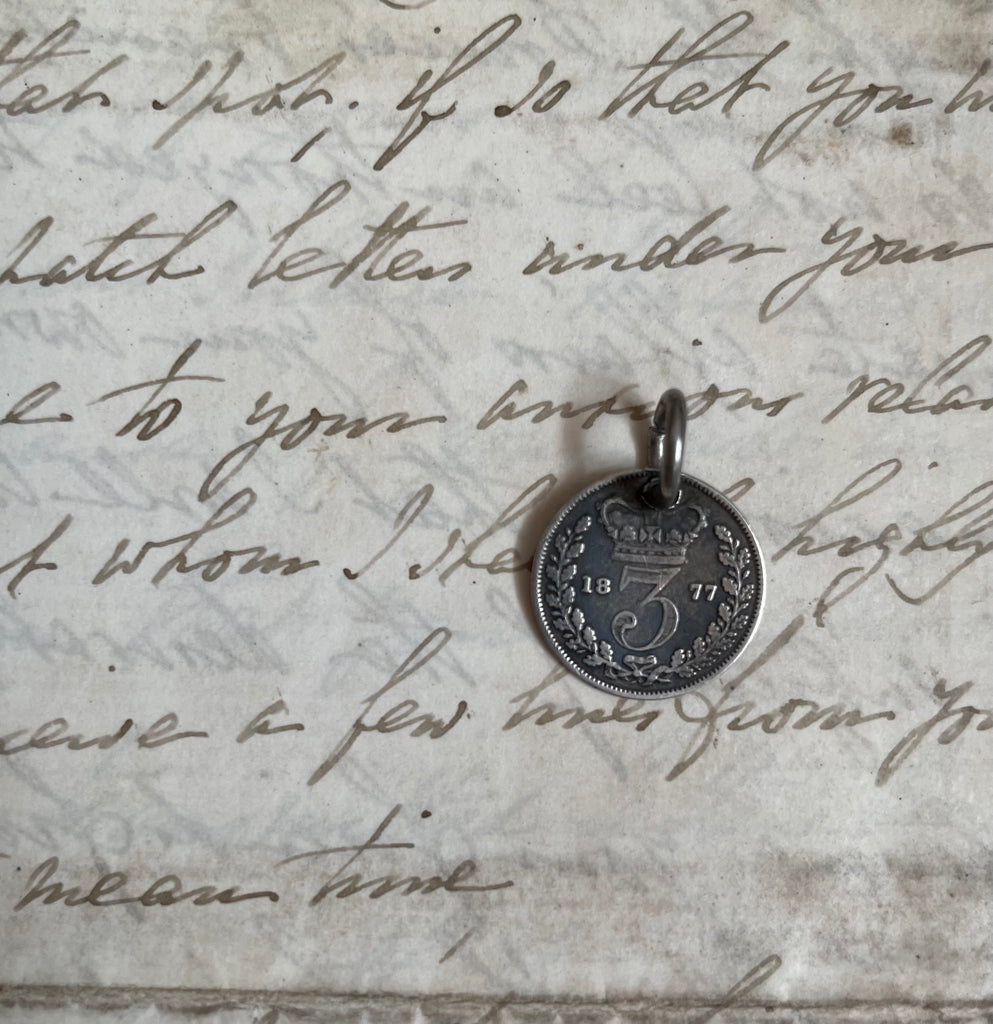 that spot, if so that you
hatch letters under your
to your anxious
t whom I highly
a few lines from yo
mean time
18 3 77